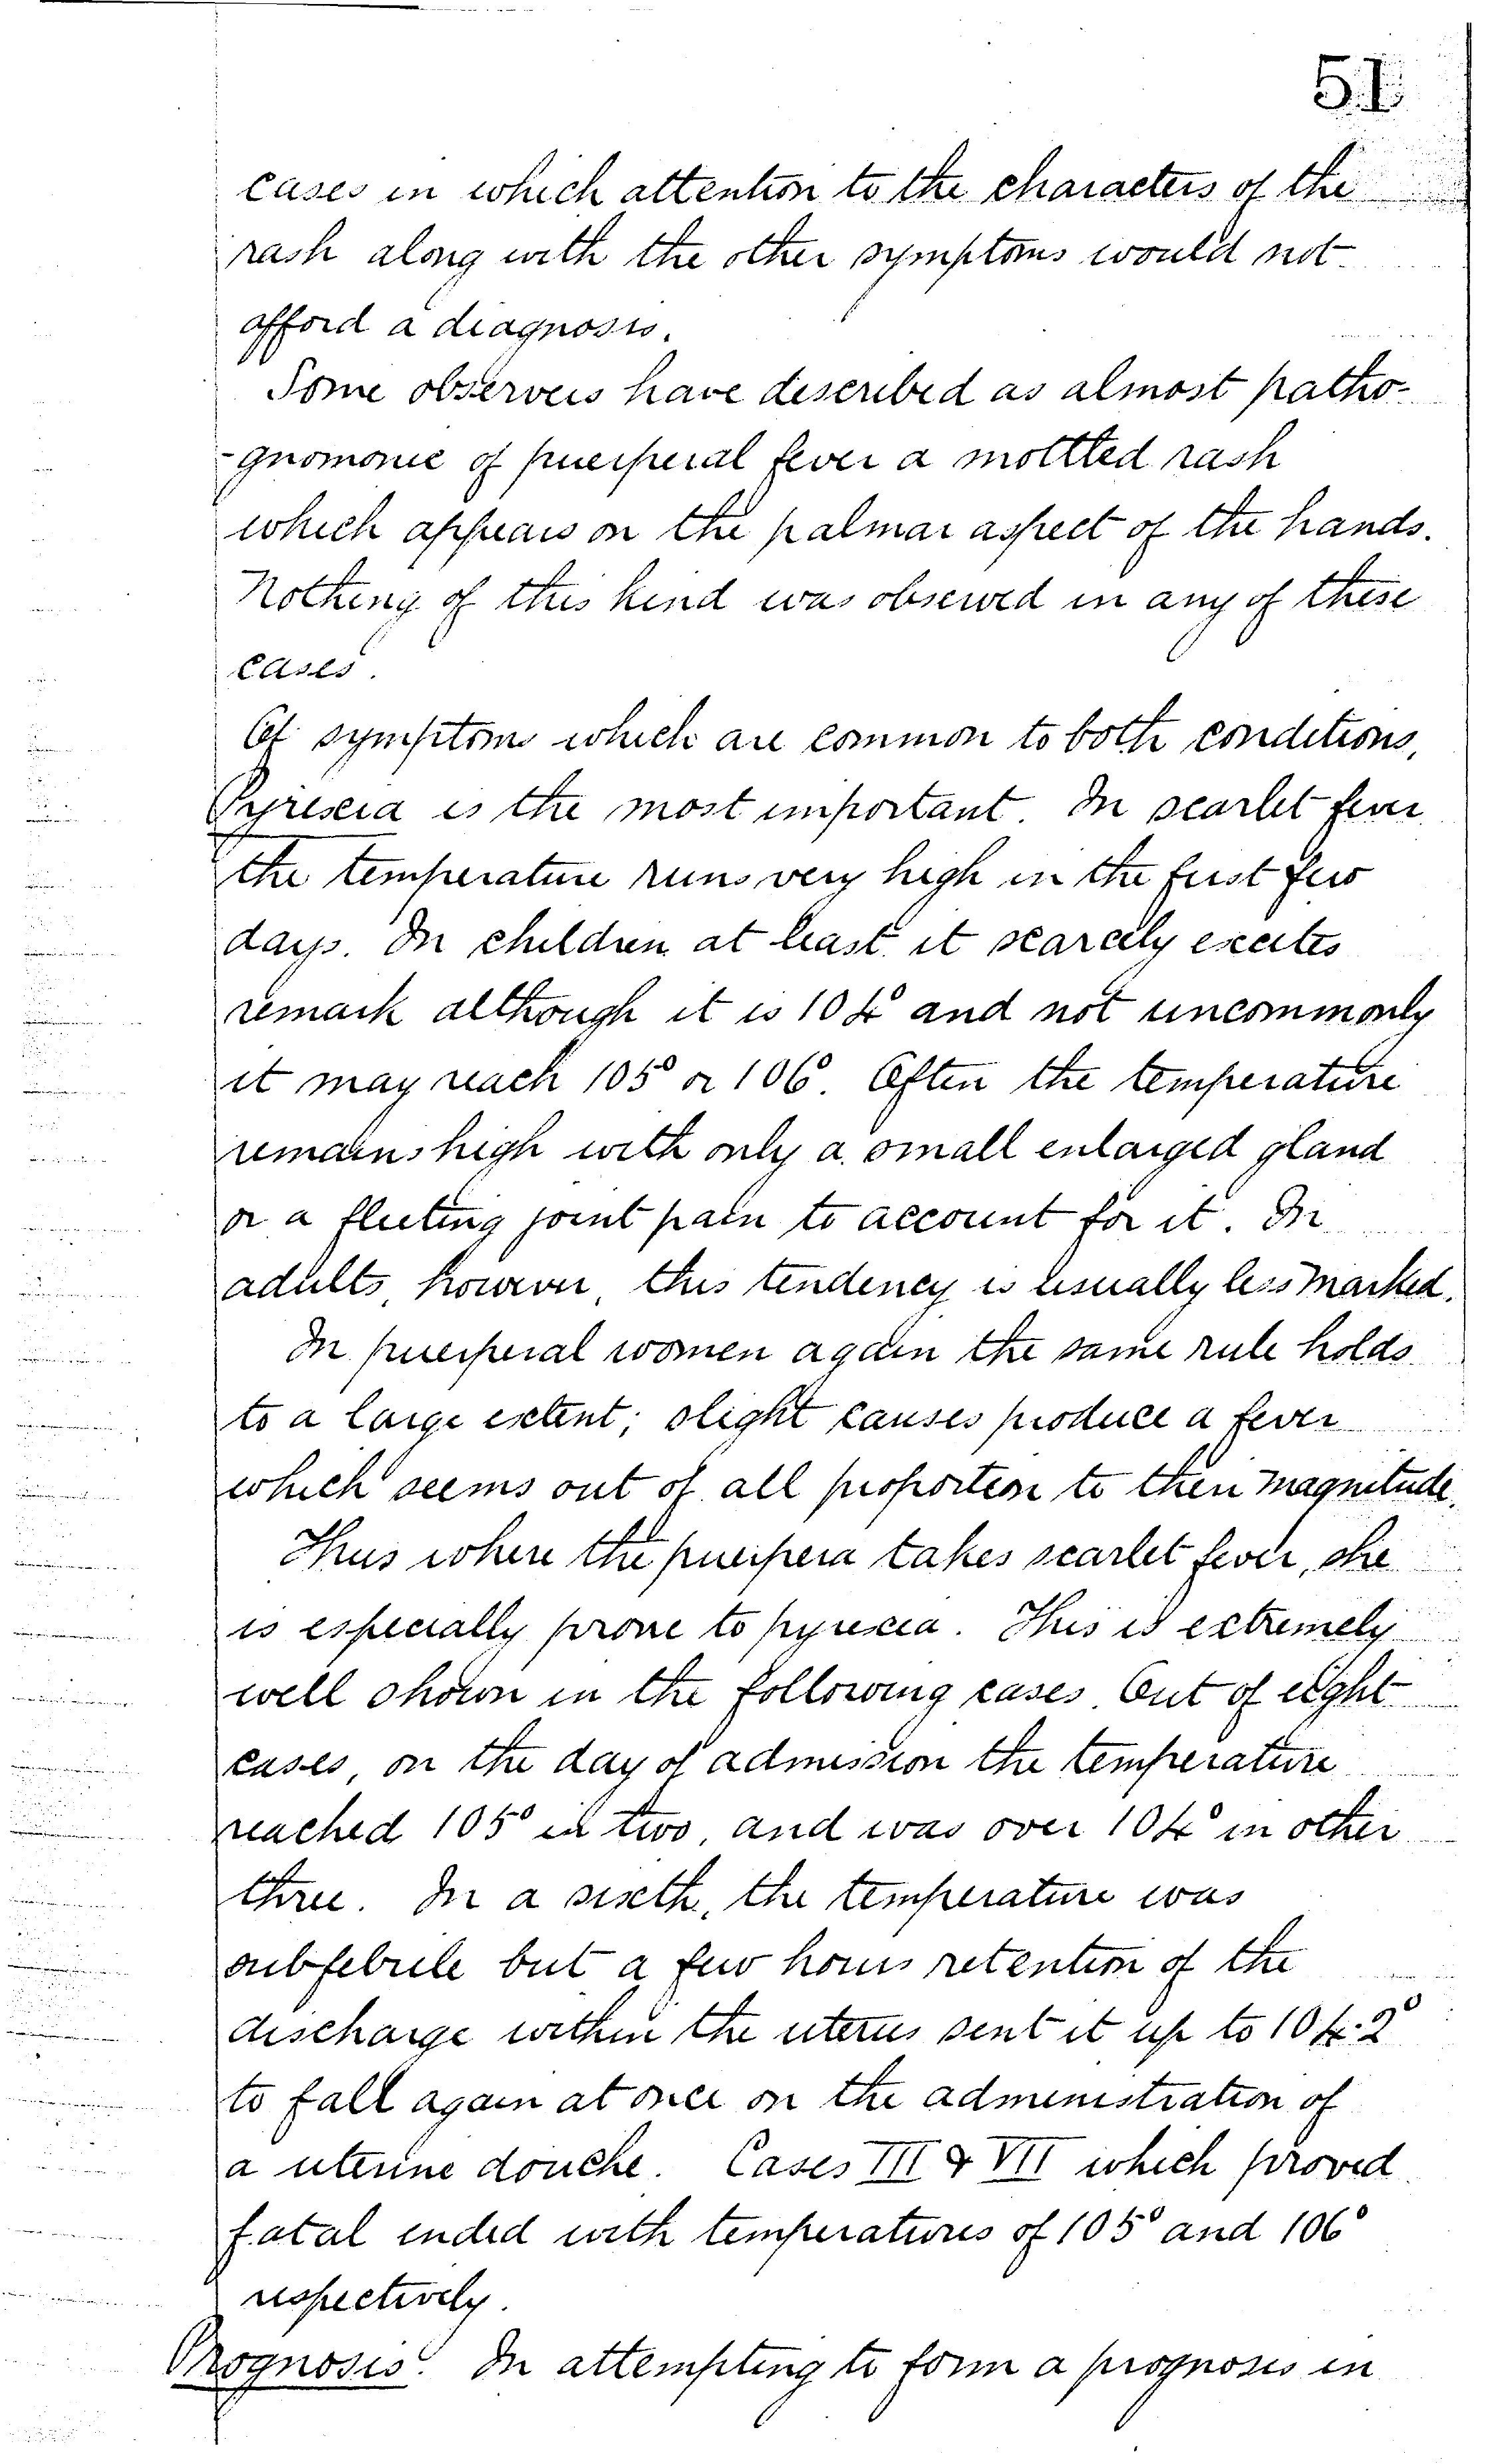 51
cases in which attention to the characters of the
rash along with the other symptoms would not
afford a diagnosis.
Some observers have described as almost patho-
-gnomonic of puerperal fever a mottled rash
which appears on the palmar aspect of the hands.
Nothing of this kind was observed in any of these
cases.
Of symptoms which are common to both conditions,
Pyrexia is the most important. In scarlet fever
the temperature runs very high in the first few
days. In children at least it scarcely excites
remark although it is 104° and not uncommonly
it may reach 105° or 106°. Often the temperature
remains high with only a small enlarged gland
or a fleeting joint pain to account for it. In
adults, however, this tendency is usually less marked.
In puerperal women again the same rule holds
to a large extent; slight causes produce a fever
which seems out of all proportion to their magnitude.
Thus where the puerpera takes scarlet fever, she
is especially prone to pyrexia. This is extremely
well shown in the following cases. Out of eight
cases, on the day of admission the temperature
reached 105° in two, and was over 104° in other
three. In a sixth, the temperature was
subfebrile but a few hours retention of the
discharge within the uterus sent it up to 104.2°
to fall again at once on the administration of
a uterine douche. Cases III & VII which proved
fatal ended with temperatures of 105° and 106°
respectively.
Prognosis. In attempting to form a prognosis in